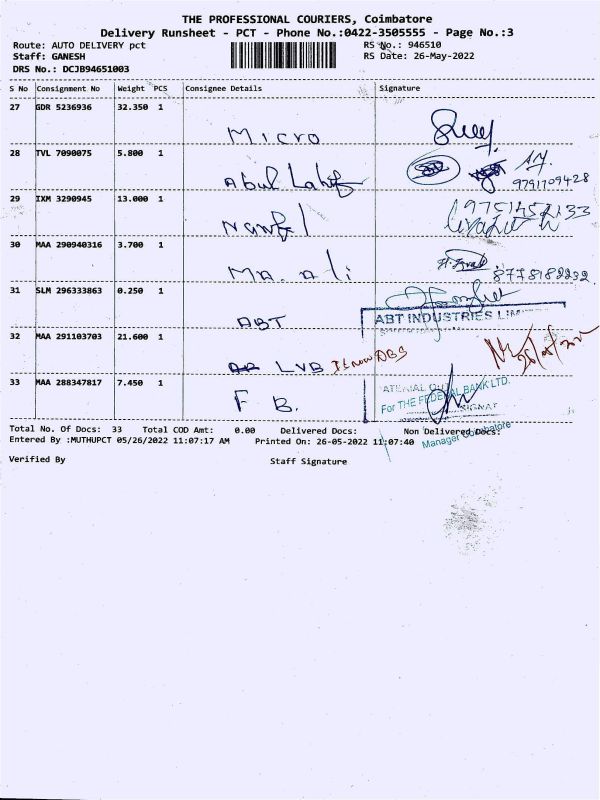 THE PROFESSIONAL COURIERS, Coimbatore
Delivery Runsheet - PCT - Phone No.:0422-3505555 - Page No.:3
Route: AUTO DELIVERY pct
RS No.: 946510
Staff: GANESH
RS Date: 26-May-2022
DRS No.: DCJB94651003
S No Consignment No Weight PCS Consignee Details Signature
27 GDR 5236936 32.350 1 Micro
28 TVL 7090075 5.800 1 Abul
9791709428
29 IXM 3290945 13.000 1
30 MAA 290940316 3.700 1 Mr. Ali
8778182232
31 SLM 296333863 0.250 1 ABT
ABT INDUSTRIES
32 MAA 291103703 21.600 1 LVB It is now DBS
33 MAA 288347817 7.450 1 F B.
For THE FEDERAL BANK LTD.
Manager Coimbatore
Total No. Of Docs: 33 Total COD Amt: 0.00 Delivered Docs: Non Delivered Docs:
Entered By :MUTHUPCT 05/26/2022 11:07:17 AM Printed On: 26-05-2022 11:07:40
Verified By Staff Signature